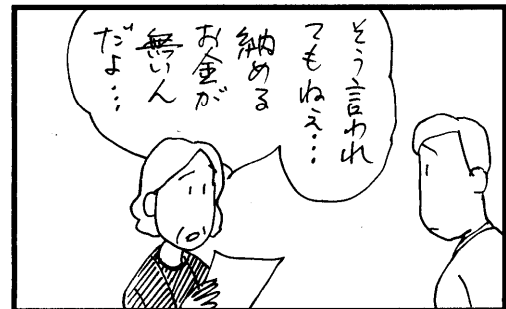 そう言われ
てもねえ…
納める
お金が
無いん
だよ…